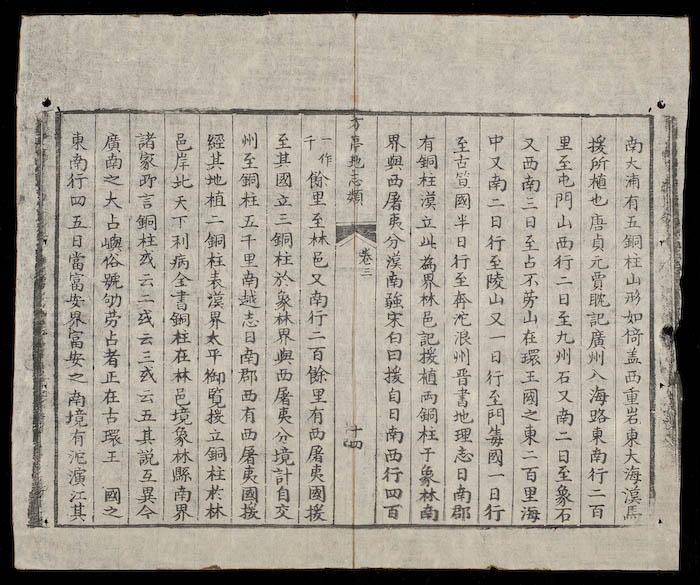 南大浦有五銅柱山形如倚盖西重岩東大海漠馬
援所植也唐貞元賈耽記廣州入海路東南行二百
里至屯門山西行二日至九州石又南二日至象石
又西南三日至占不劳山在環王國之東二百里海
中又南二日行至陵山又一日行至門毒國一日行
至古笪國半日行至奔沱浪州晋書地理志日南郡
有銅柱漠立此為界林邑記援植两銅柱于象林南
界與西屠夷分漠南疆宋白曰援自日南西行四百
方亭地志類
卷三
十四
一作
千
餘里至林邑又南行二百餘里有西屠夷國援
至其國立三銅柱於象林界與西屠夷分境計自交
州至銅柱五千里南越志日南郡西有西屠夷國援
經其地植二銅柱表漠界太平御覽援立銅柱於林
邑岸北天下利病全書銅柱在林邑境象林縣南界
諸家所言銅柱或云二或云三或云五其說互異今
廣南之大占嶼俗號劬劳占者正在古環王 國之
東南行四五日當富安界富安之南境有沱演江其